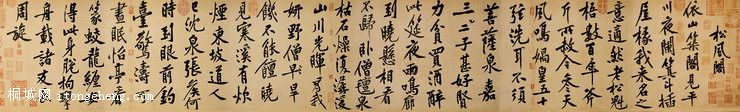 松風閣
依山築閣見平
川夜闌箕斗插
屋椽我來名之
意適然老松魁
梧數百年斧
斤所赦今參天
風鳴媧皇五十
弦洗耳不須
菩薩泉嘉
二三子甚好賢
力貧買酒醉
此筵夜雨鳴廊
到曉懸相看
不歸臥僧氈泉
枯石燥復潺湲
山川光輝為我
妍野僧旱
饑不能饘曉
見寒溪有炊
煙東坡道人
已沉泉張侯何
時到眼前釣
臺驚濤可
晝眠怡亭看
篆蛟龍纏安
得此身脫拘攣
舟載諸友長
周旋
桐城网-itongcheng.com